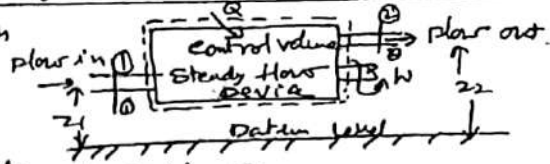 Q
②
control volume
flow out.
flow in
①
Steady flow
Device
②
W
①
Z1
Z2
Datum level